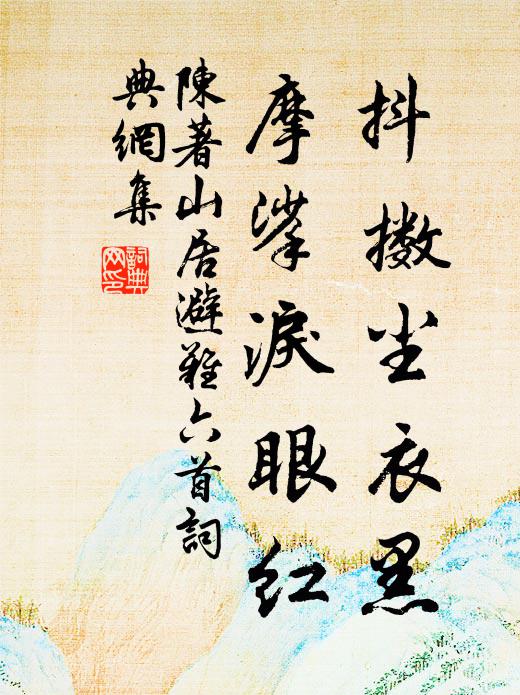 抖擻尘衣黑
摩挲淚眼红
陳著山居避難六首詞
典網集
詞典
网印